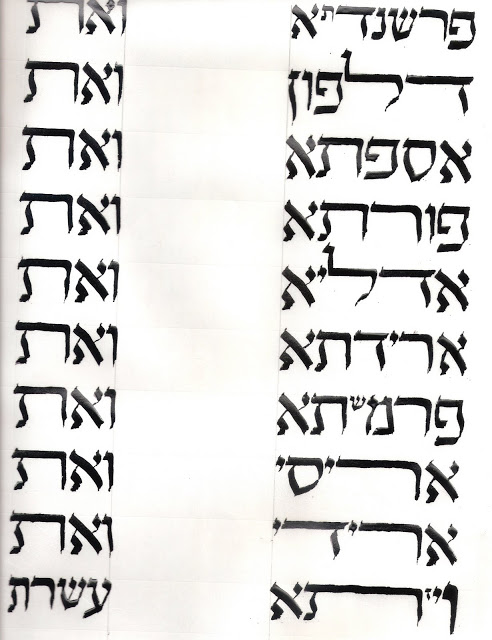 פרשנדתא ואת
דלפון ואת
אספתא ואת
פורתא ואת
אדליא ואת
ארידתא ואת
פרמשתא ואת
אריסי ואת
ארידי ואת
ויזתא עשרת